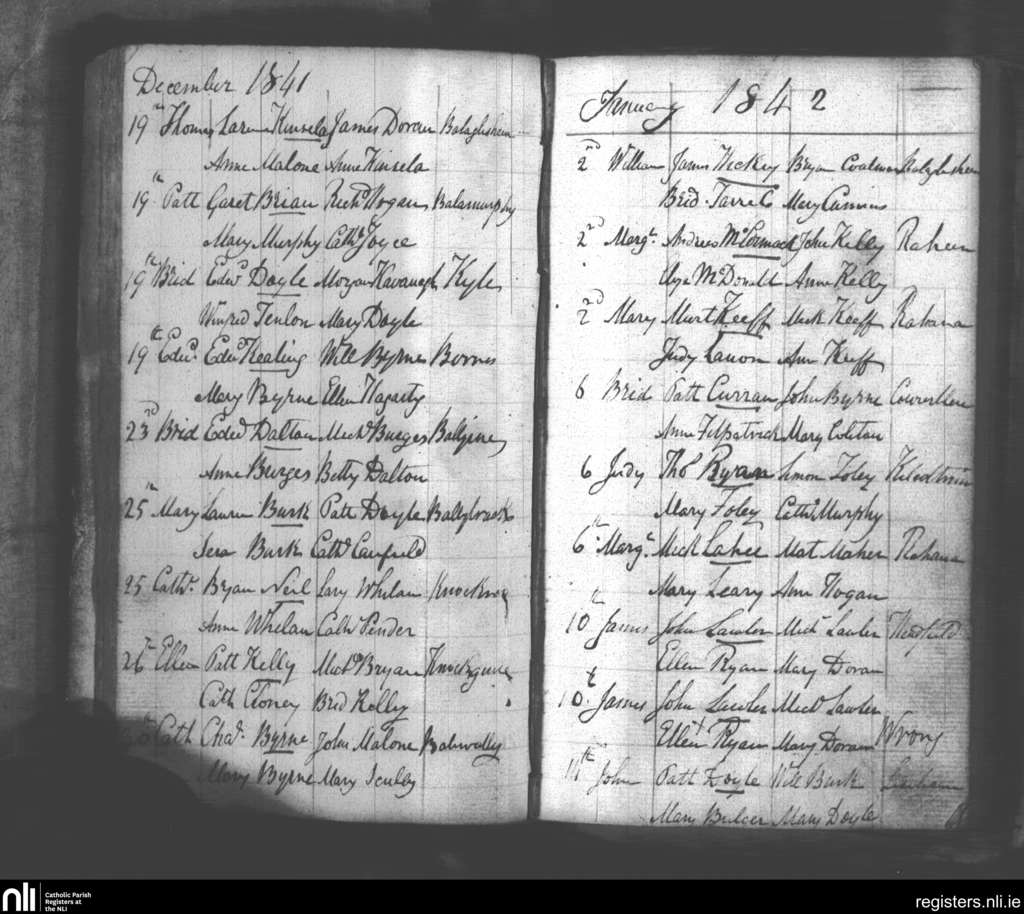 December 1841
19th Thomas Laren Kinsela James Doran Balaghshem
Anne Malone Anne Kinsela
19th Patt Garet Brian Richd Hogan Balamurphy
Mary Murphy Cathe Joyce
19th Brid Edwd Doyle Morgan Kavanagh Kyle
Winfred Fenlon Mary Doyle
19th Edwd Edwd Healing Will Byrne Borres
Mary Byrne Ellen Hagarty
23rd Brid Edwd Dalton Michl Burges
Anne Burges Betty Dalton
25th Mary Lauren Burk Patt Doyle Ballybrack
Burk Cathe Canfield
25 Cathe Bryan Neil Lary Whelan Knockroe
Anne Whelan Cathe Pender
26th Ellen Patt Kelly Bryan
Cath Cloney Brid Kelly
Cath Chas Byrne John Malone
Mary Byrne Mary Sculley
January 1842
2nd William James Hickey Bryan
Brid Farrel Mary
2nd Margt Andrew McCormack John Kelly Raheen
McDonald Anne Kelly
2nd Mary Murt Keeff Mick Keeff Rahana
Judy Lanon Ann Keeff
6 Brid Patt Curran John Byrne
Anne Fitpatrick Mary
6 Judy Thos Ryan Simon Foley
Mary Foley Cathe Murphy
6th Margt Mick Lahee Mat Maher Rahana
Mary Leary Ann Hogan
10th James John Lawler Michl Lawler
Ellen Ryan Mary Doran
10th James John Lawler Michl Lawler
Ellen Ryan Mary Doran Wrong
11th John Patt Doyle Will Burk
Mary Mary Doyle
nli
Catholic Parish
Registers at
the NLI
registers.nli.ie